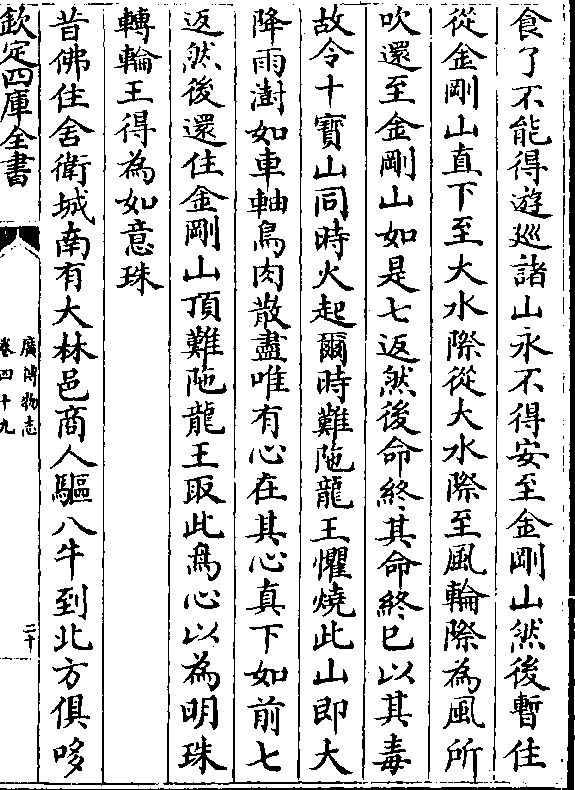 食了不能得遊巡諸山永不得安至金剛山然後暫住
從金剛山直下至大水際從大水際至風輪際為風所
吹還至金剛山如是七返然後命終其命終已以其毒
故令十寶山同時火起爾時難陁龍王懼燒此山即大
降雨澍如車軸鳥肉散盡唯有心在其心真下如前七
返然後還住金剛山頂難陁龍王取此鳥心以為明珠
轉輪王得為如意珠
昔佛住舍衛城南有大林邑商人驅八牛到北方俱哆
欽定四庫全書
廣博物志
卷四十九
二十